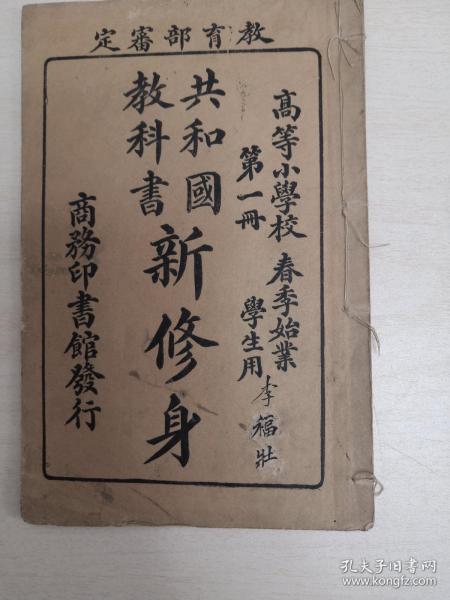 教育部審定
高等小學校 春季始業
第一冊 學生用
李福壯
共和國
教科書
新修身
商務印書館發行
孔夫子旧书网
www.kongfz.com